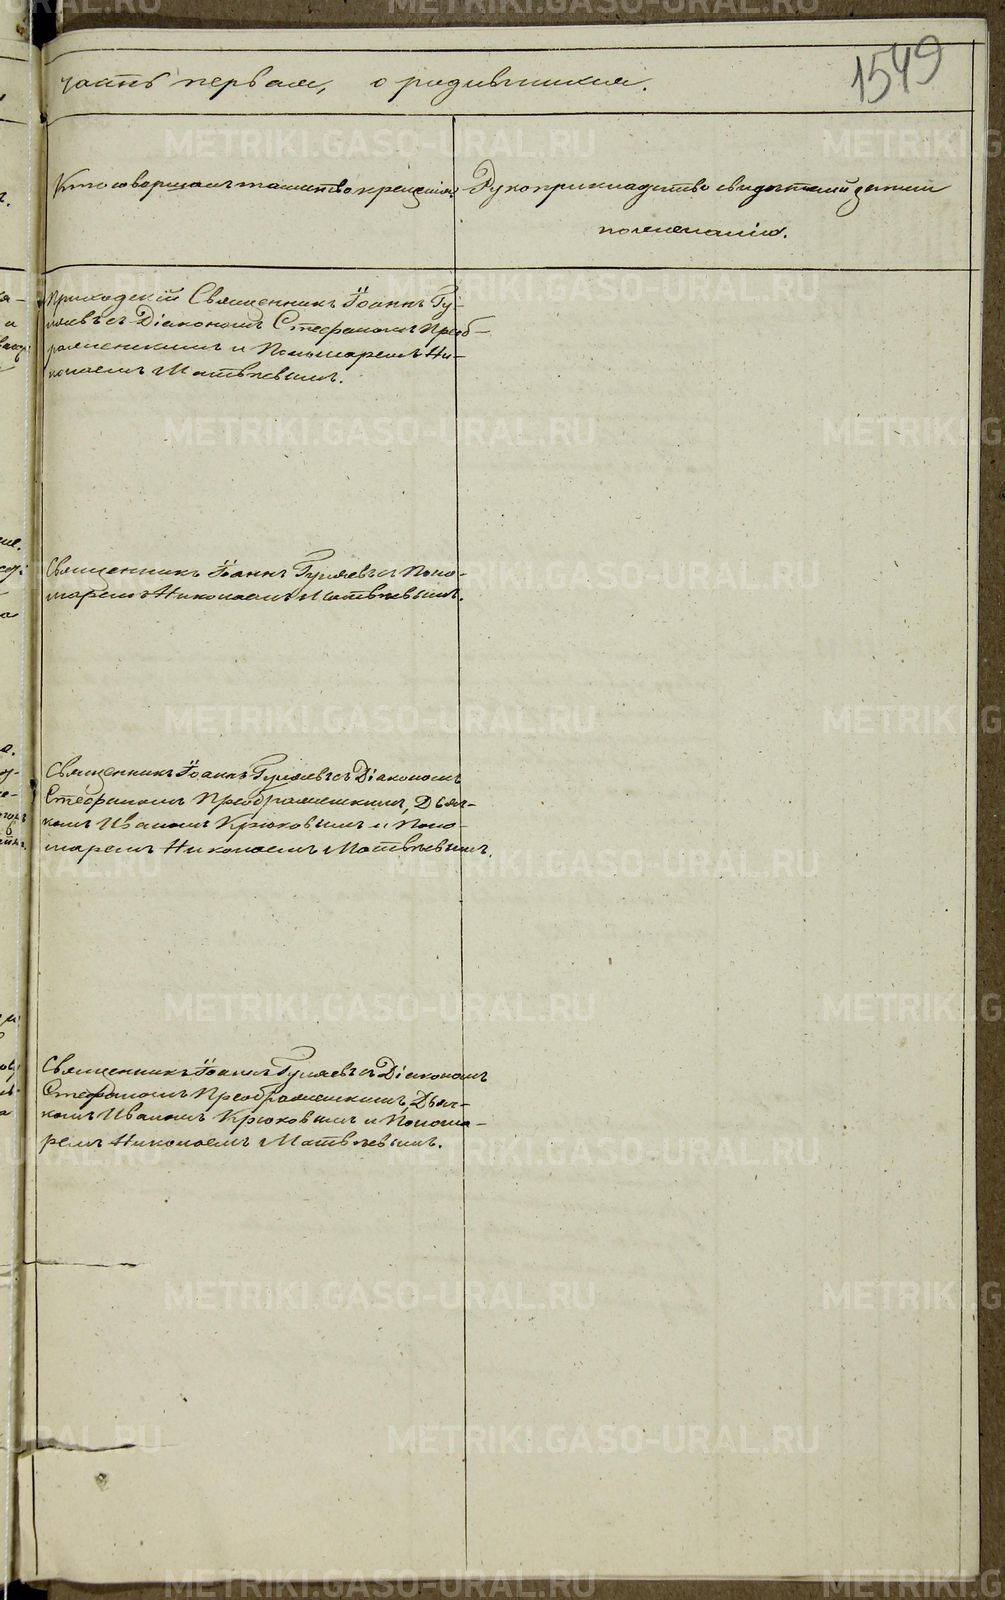 1549
часть первая, о родившихся.
Кто совершалъ таинство крещенія.
Рукоприкладство свидѣтелей записи
по желанію.
Приходскій Священникъ Іоаннъ Гу-
ляевъ съ Діакономъ Стефаномъ Преоб-
раженскимъ и Пономаремъ Ни-
колаемъ Матвѣевымъ.
Священникъ Іоаннъ Гуляевъ съ Поно-
маремъ Николаемъ Матвѣевымъ.
Священникъ Іоаннъ Гуляевъ съ Діакономъ
Стефаномъ Преображенскимъ, Дьяч-
комъ Иваномъ Крюковымъ и Поно-
маремъ Николаемъ Матвѣевымъ.
Священникъ Іоаннъ Гуляевъ съ Діакономъ
Стефаномъ Преображенскимъ, Дьяч-
комъ Иваномъ Крюковымъ и Понома-
ремъ Николаемъ Матвѣевымъ.
METRIKI.GASO-URAL.RU